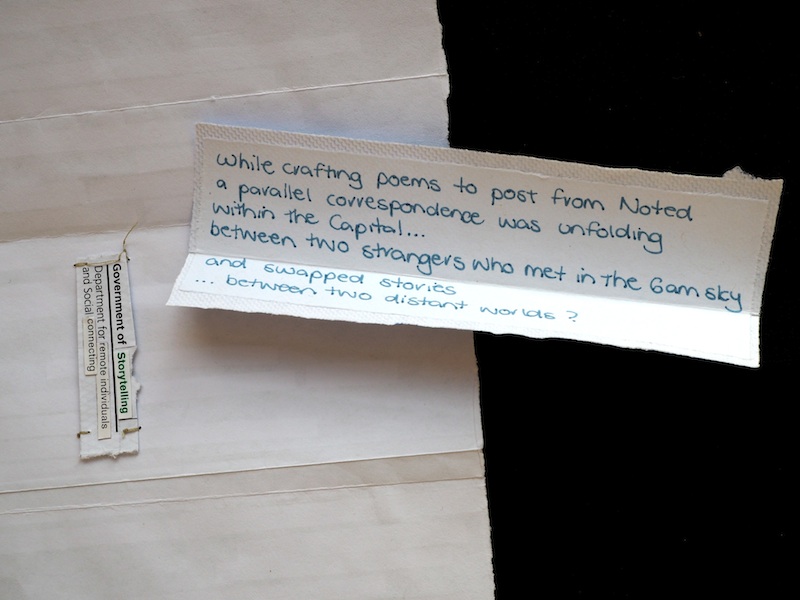 While crafting poems to post from Noted
a parallel correspondence was unfolding
within the Capital...
between two strangers who met in the 6am sky
and swapped stories
... between two distant worlds?
Government of Storytelling
Department for remote individuals
and Social connecting